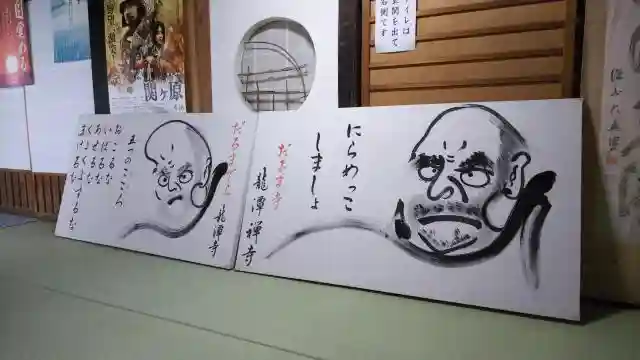 トイレは
玄関を出て
右側です
関ヶ原
にらめっこ
しましょ
だるま寺
龍潭禅寺
だるまでら
龍潭寺
五つのこころ
おこるな
いばるな
あせるな
まけるな